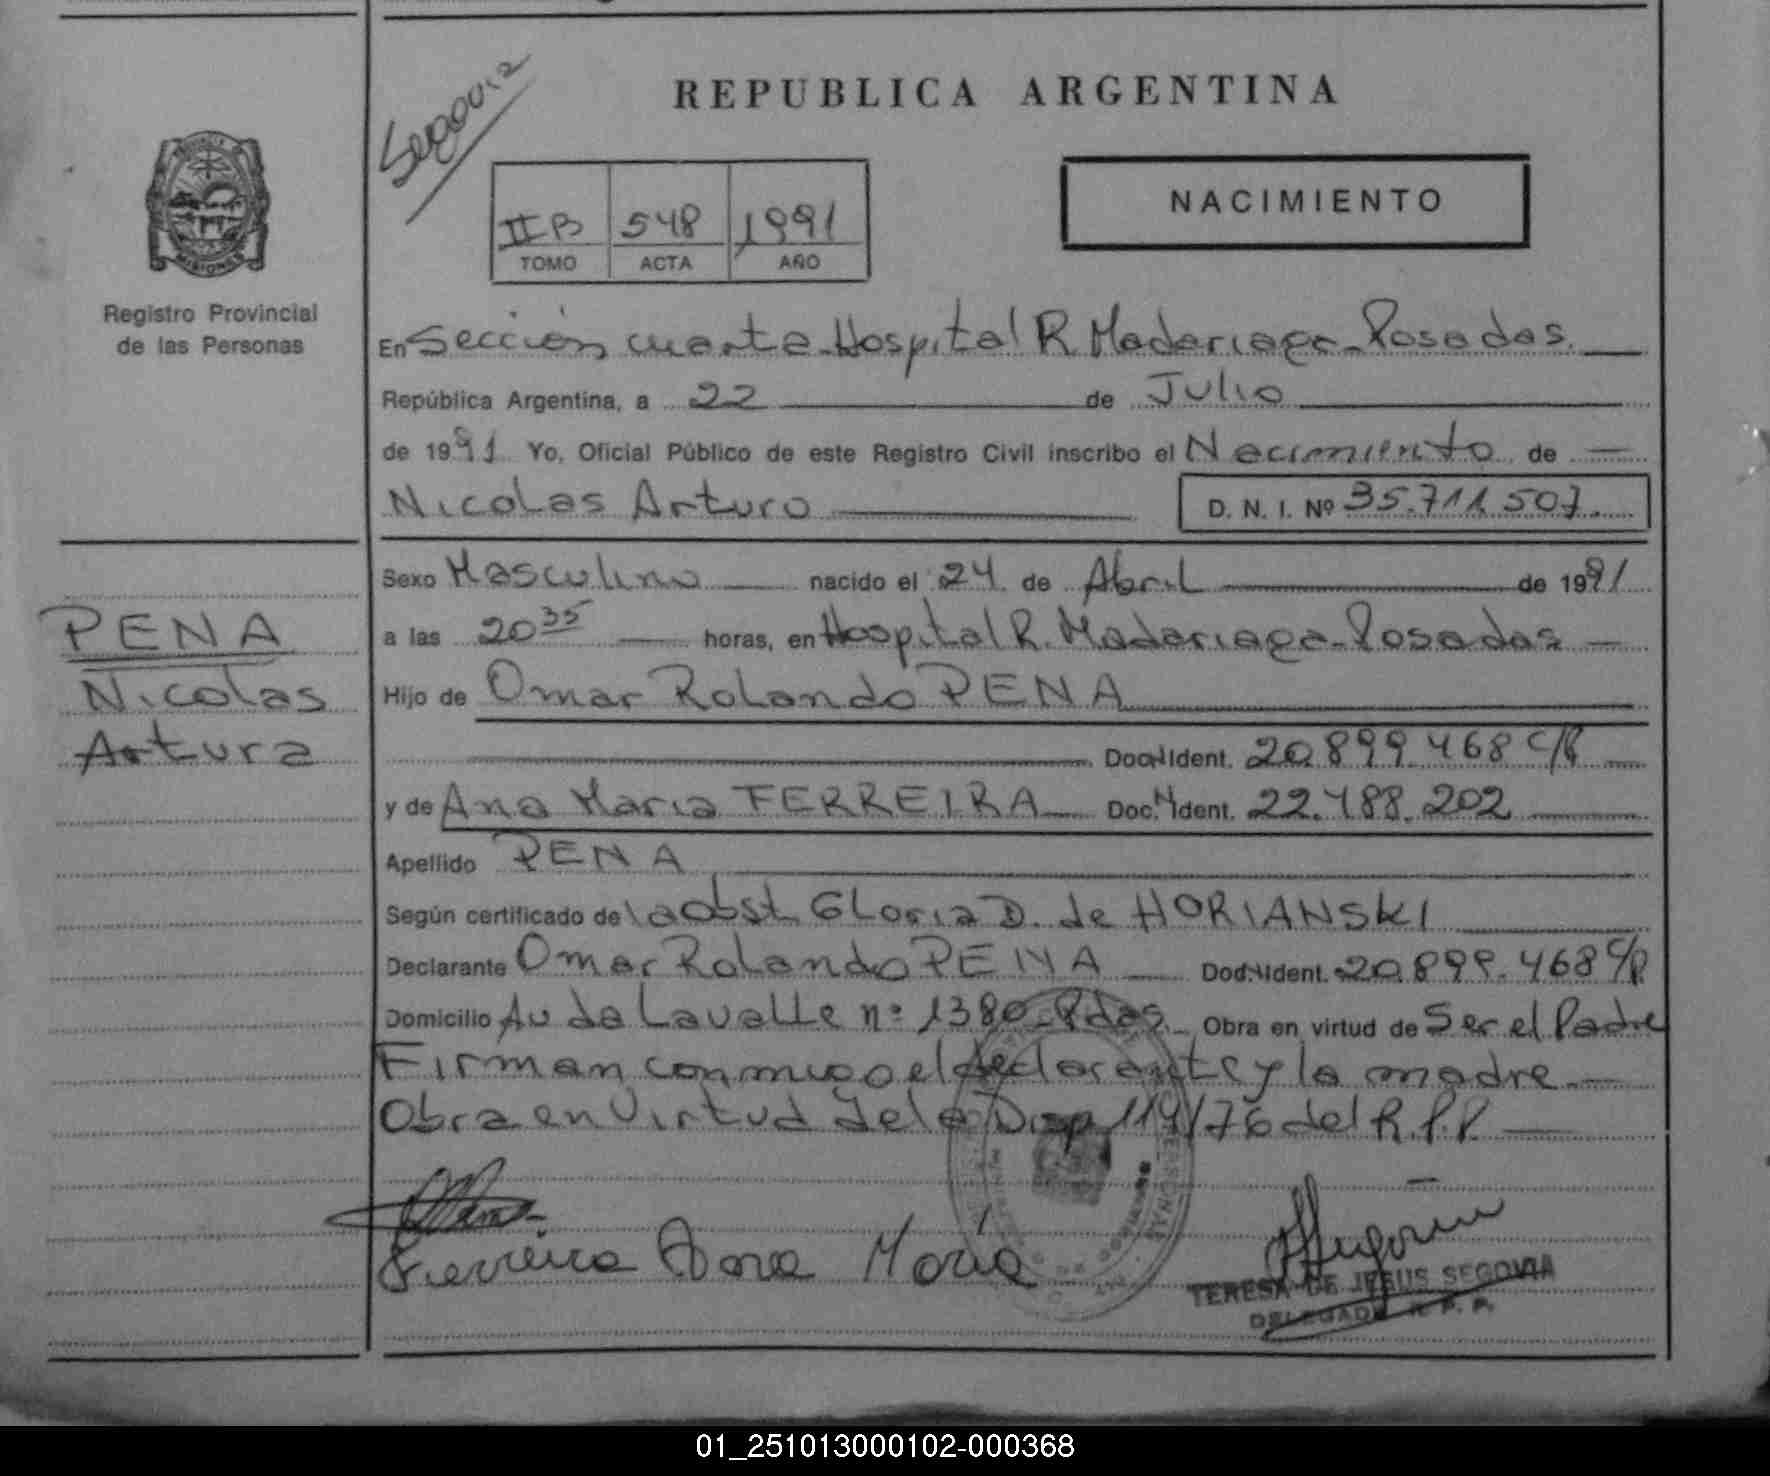 Segovia
REPUBLICA ARGENTINA
NACIMIENTO
II B 548 1991
TOMO ACTA AÑO
MISIONES
Registro Provincial
de las Personas
En Sección cuarta Hospital R. Madariaga - Posadas.
República Argentina, a 22 de Julio
de 1991 Yo, Oficial Público de este Registro Civil inscribo el Nacimiento de
Nicolas Arturo D. N. I. Nº 35.711.507.
Sexo Masculino nacido el 24 de Abril de 1991
a las 20 35 horas, en Hospital R. Madariaga - Posadas
PENA
Nicolas
Arturo
Hijo de Omar Rolando PENA
Doc. N Ident. 20.899.468 C/P
y de Ana Maria FERREIRA Doc. N Ident. 22.488.202
Apellido PENA
Según certificado de la Obst. Gloria D. de HORIANSKI
Declarante Omar Rolando PENA Doc. N Ident. 20.899.468 C/P
Domicilio Avda Lavalle nº 1380 - Pdas. Obra en virtud de Ser el Padre
Firman conmigo el declarante y la madre
Obra en Virtud de la Disp 119/76 del R.P.P.
Ferreira Ana Maria
TERESA DE JESUS SEGOVIA
DELEGADA R. P. P.
01_251013000102-000368